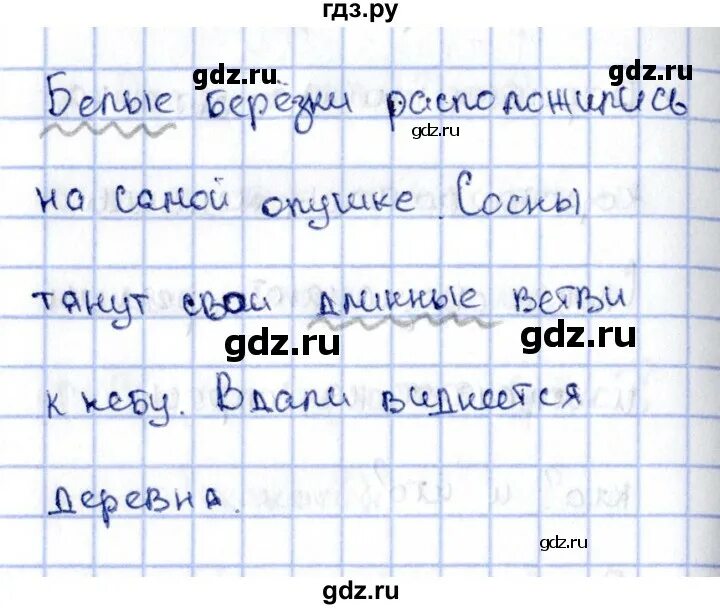 гдз.ру
gdz.ru
gdz.ru
Белые берёзки расположились
gdz.ru
на самой опушке. Сосны
тянут свои длинные ветви
gdz.ru
gdz.ru
к небу. Вдали виднеется
деревна.
gdz.ru
gdz.ru